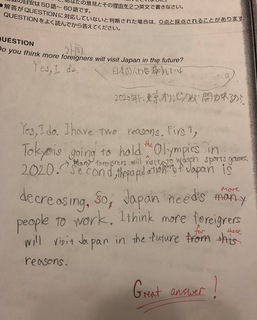 ● 解答がQUESTIONに対応していないと判断された場合は、0点と採点されることがあります。
QUESTIONをよく読んでから答えてください。
QUESTION
Do you think more foreigners will visit Japan in the future?
Yes, I do.
Yes, I do. I have two reasons. First,
Tokyo is going to hold the Olympics in
2020. Many foreigners will visit to watch sports games.
Second, the population of Japan is
decreasing. So, Japan needs many more
people to work. I think more foreigners
will visit Japan in the future from this for these
reasons.
Great answer!